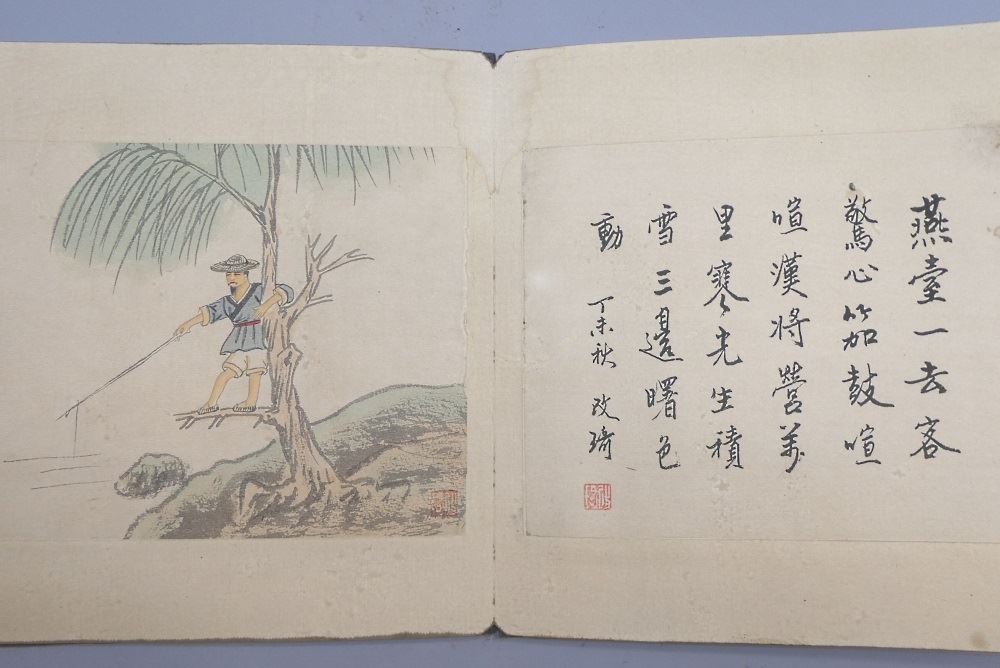 燕臺一去客
驚心笳鼓喧
喧漢將營萬
里寒光生積
雪三邊曙色
動 丁未秋 改琦